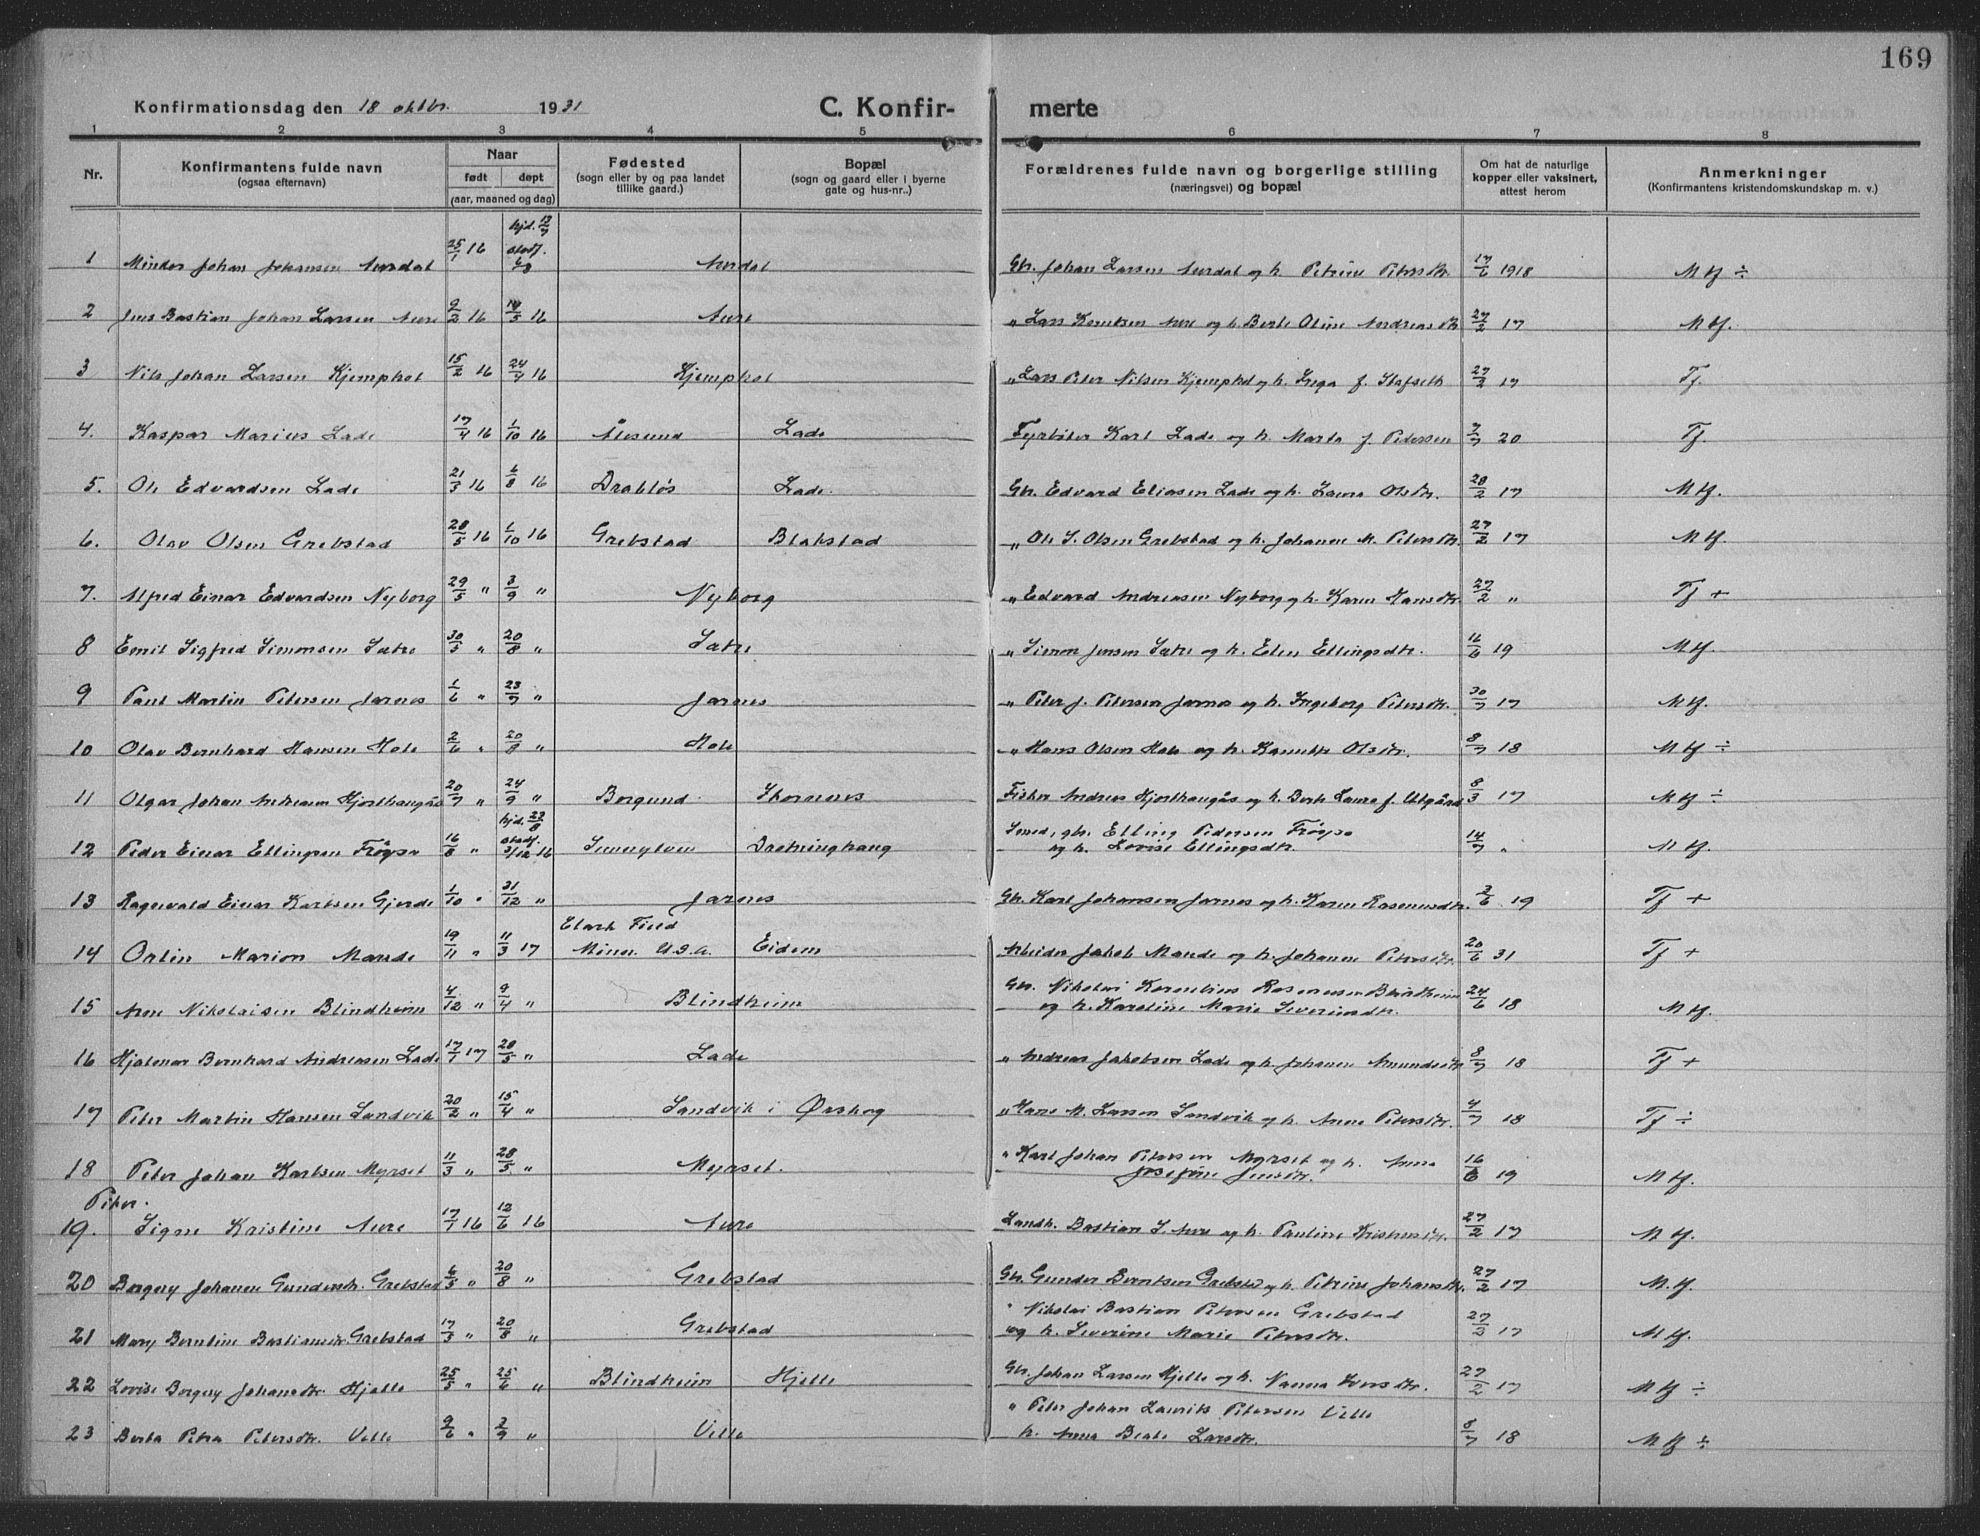 169
Konfirmationsdag den 18 oktbr. 1931 C. Konfir- merte
1 2 3 4 5 6 7 8
Nr. Konfirmantens fulde navn (ogsaa efternavn) Naar født døpt (aar, maaned og dag) Fødested (sogn eller by og paa landet tillike gaard.) Bopæl (sogn og gaard eller i byerne gate og hus-nr..) Forældrenes fulde navn og borgerlige stilling (næringsvei) og bopæl Om hat de naturlige kopper eller vaksinert, attest herom Anmerkninger (Konfirmantens kristendomskundskap m. v.)
1 Mindor Johan Johansen Aurdal 25/1 16 hjd. Aurdal Gbr. Johan Larsen Aurdal og h. Petrine Petersdtr. 17/6 1918 M tf ÷
2 Jens Bastian Johan Larsen Aure 9/2 16 14/5 16 Aure „ Lars Knutsen Aure og h. Berte Oline Andreasdtr. 27/2 17 M tf.
3 Nils Johan Larsen Kjemphol 15/2 16 24/4 16 Kjemphol „ Lars Peter Nilsen Kjemphol og h. Inga f. Stafseth 27/2 17 Tf.
4. Kaspar Marius Lade 17/4 16 1/10 16 Ålesund Lade Fyrbøter Karl Lade og h. Marta f. Pedersen 7/7 20 Tf.
5. Ole Edvardsen Lade 21/3 16 6/8 16 Drabløs Lade. Gbr. Edvard Eliasen Lade og h. Laura Olsdtr. 28/2 17 M tf.
6. Olav Olsen Grebstad 28/5 16 1/10 16 Grebstad Blakstad „ Ole S. Olsen Grebstad og h. Johanne M. Petersdtr. 27/2 17 M tf.
7. Alfred Einar Edvardsen Nyborg 29/5 „ 3/9 „ Nyborg „ Edvard Andreasen Nyborg og h. Karen Hansdtr. 27/2 „ Tf +
8 Emil Sigfred Simonsen Sætre 30/5 „ 20/8 „ Sætre „ Simon Jensen Sætre og h. Elen Ellingsdtr. 16/6 19 M tf.
9 Paul Martin Petersen Jarnes 1/6 „ 23/7 „ Jarnes „ Peter J. Petersen Jarnes og h. Ingeborg Petersdtr. 30/7 17 M tf.
10 Olav Bernhard Hansen Hole 2/6 „ 20/8 „ Hole „ Hans Olsen Hole og h. Kanutte Olsdtr. 8/7 18 M tf ÷
11 Olgar Johan Andreasen Hjorthaugås 20/7 „ 24/9 „ Borgund Skornes Fisker Andreas Hjorthaugås og h. Berte Laura f. Utgård 8/3 17 M tf ÷
12 Peder Einar Ellingsen Frøysa 16/8 „ hjd. 27/8 stadf. 3/12 16 Sunnylven Drotninghaug Smed, gbr. Elling Pedersen Frøysa
og h. Lovise Ellingsdtr. 14/7 „ M tf.
13 Ragnvald Einar Karlsen Gjerde 1/10 „ 31/12 „ Jarnes Gbr. Karl Johansen Jarnes og h. Karen Rasmusdtr. 2/6 19 Tf +
14 Orlin Marion Mande 19/11 „ 11/3 17 Clark Field
Minn. U.S.A. Eidem Arbeider Jakob Mande og h. Johanne Petersdtr. 20/6 31 Tf +
15 Arne Nikolaisen Blindheim 4/12 „ 9/4 „ Blindheim Gbr. Nikolai Kornelius Rasmussen Blindheim
og h. Karoline Marie Severinsdtr. 24/6 18 M tf.
16 Hjalmar Bernhard Andreasen Lade 17/1 17 28/5 „ Lade „ Andreas Jakobsen Lade og h. Johanne Amundsdtr 8/7 18 Tf +
17 Peter Martin Hansen Sandvik 20/2 „ 15/4 „ Sandvik i Ørskog „ Hans M. Larsen Sandvik og h. Anne Petersdtr. 4/7 18 Tf ÷
18 Peter Johan Karlsen Myrset 11/3 „ 28/5 „ Myrset. „ Karl Johan Petersen Myrset og h. Anna
Josefine Jensdtr. 16/6 19 M tf.
Piker.
19. Signe Kristine Aure 17/1 16 12/6 16 Aure Landh. Bastian S. Aure og h. Pauline Kristensdtr. 27/2 17 M tf.
20 Borgny Johanne Gundersdtr. Grebstad 6/5 „ 20/8 „ Grebstad Gbr. Gunder Berntsen Grebstad og h. Petrine Johansdtr. 27/2 17 M. tf.
21 Mary Berntine Bastiansdtr. Grebstad 17/3 „ 20/8 „ Grebstad „ Nikolai Bastian Petersen Grebstad
og h. Severine Marie Petersdtr. 27/2 17 M tf.
22 Lovise Borgny Johansdtr. Hjelle 25/5 „ 25/6 „ Blindheim Hjelle Gbr. Johan Larsen Hjelle og h. Nanna Iversdtr. 27/2 17 M tf ÷
23 Berta Petra Petersdtr. Velle 9/6 „ 2/9 „ Velle „ Peter Johan Laurits Petersen Velle
h. Anna Beate Larsdtr. 8/7 18 M tf ÷